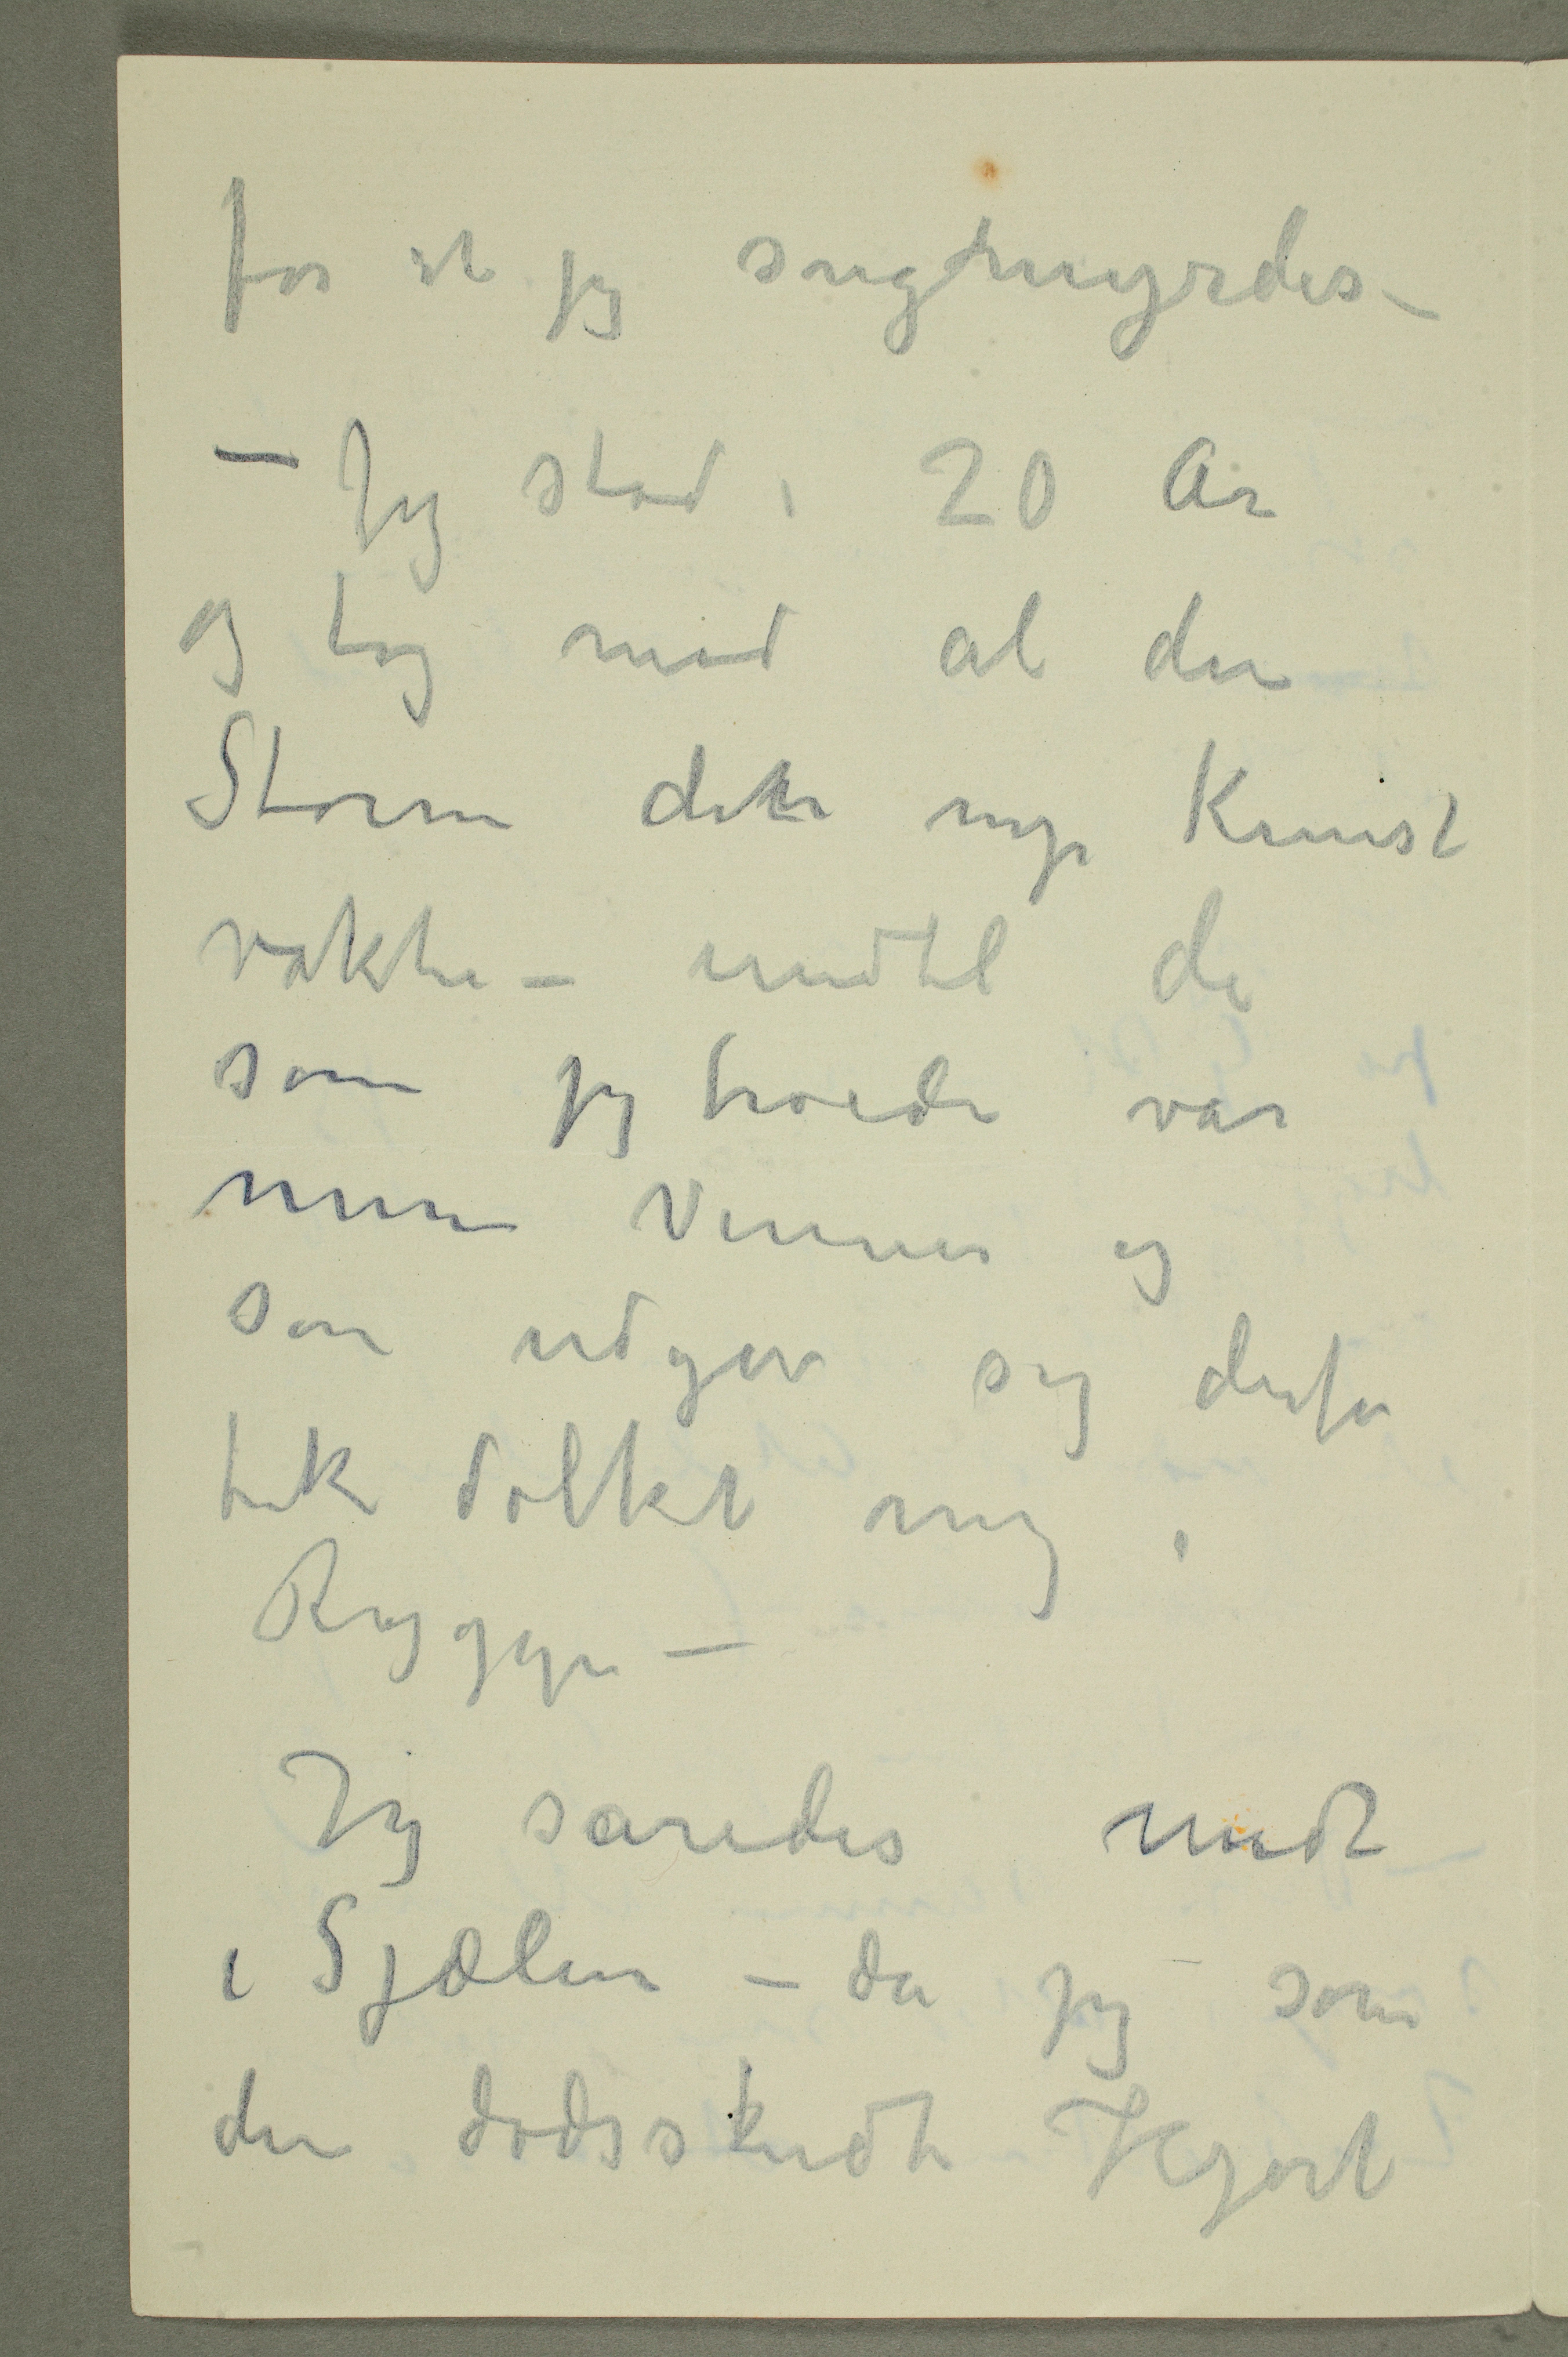 for at jeg snigmyrdes –
– Jeg stod i 20 År
og tog mod al den
Storm den nye Kunst
vakte – indtil de
som jeg troede var
mine Venner og
som udgav sig derfor
fik dolket mig i
Ryggen –
Jeg såredes midt
i Sjælen – da jeg som
den dødsskudte Hjort